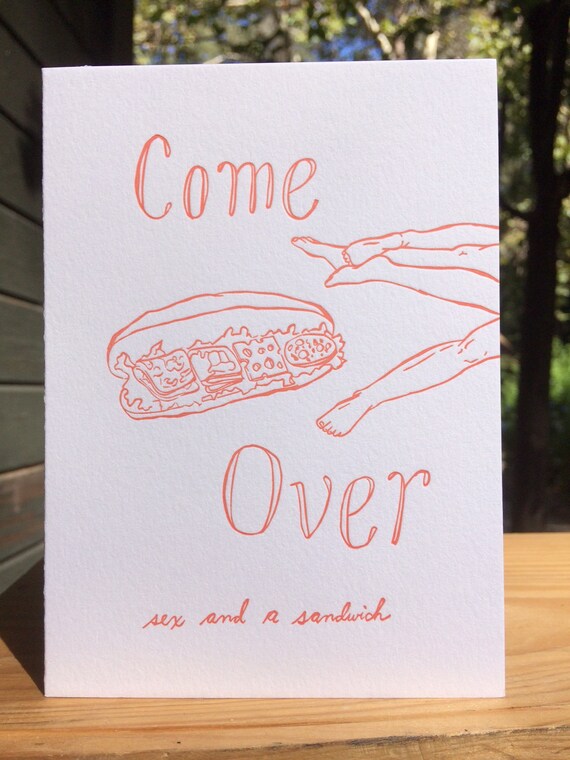 Come
Over
sex and a sandwich